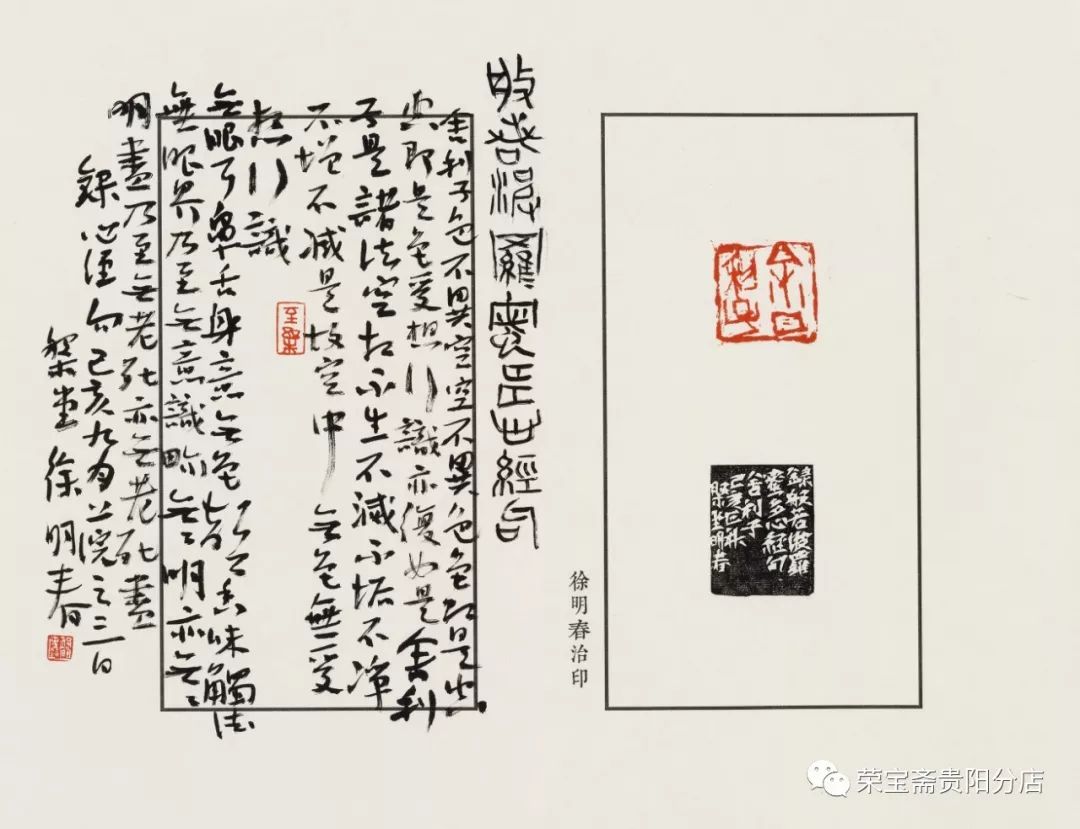 舍利子
錄般若波羅
蜜多心經句
舍利子
槃堂明春
徐明春治印
般若波羅蜜多心經句
舍利子色不異空空不異色色即是空
空即是色受想行識亦復如是舍利
子是諸法空相不生不滅不垢不淨
不增不減是故空中無色無受
想行識
至樂
無眼耳鼻舌身意無色聲香味觸法
無眼界乃至無意識界無無明亦無無
明盡乃至無老死亦無老死盡
錄心經句己亥九月上浣之三日
槃堂徐明春
荣宝斋贵阳分店